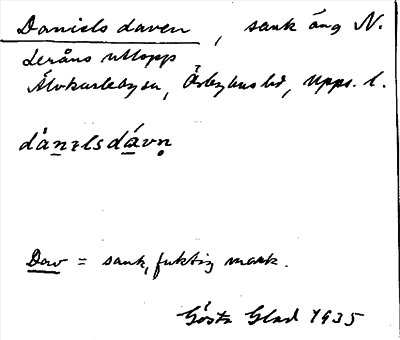 Daniels daven, sank äng N.
Leråns utlopp
Älvkarleby sn, Örbyhus hd, Upps. l.
dånɩlsdávn̥
Dav = sank, fuktig mark.
Gösta Glad 1935